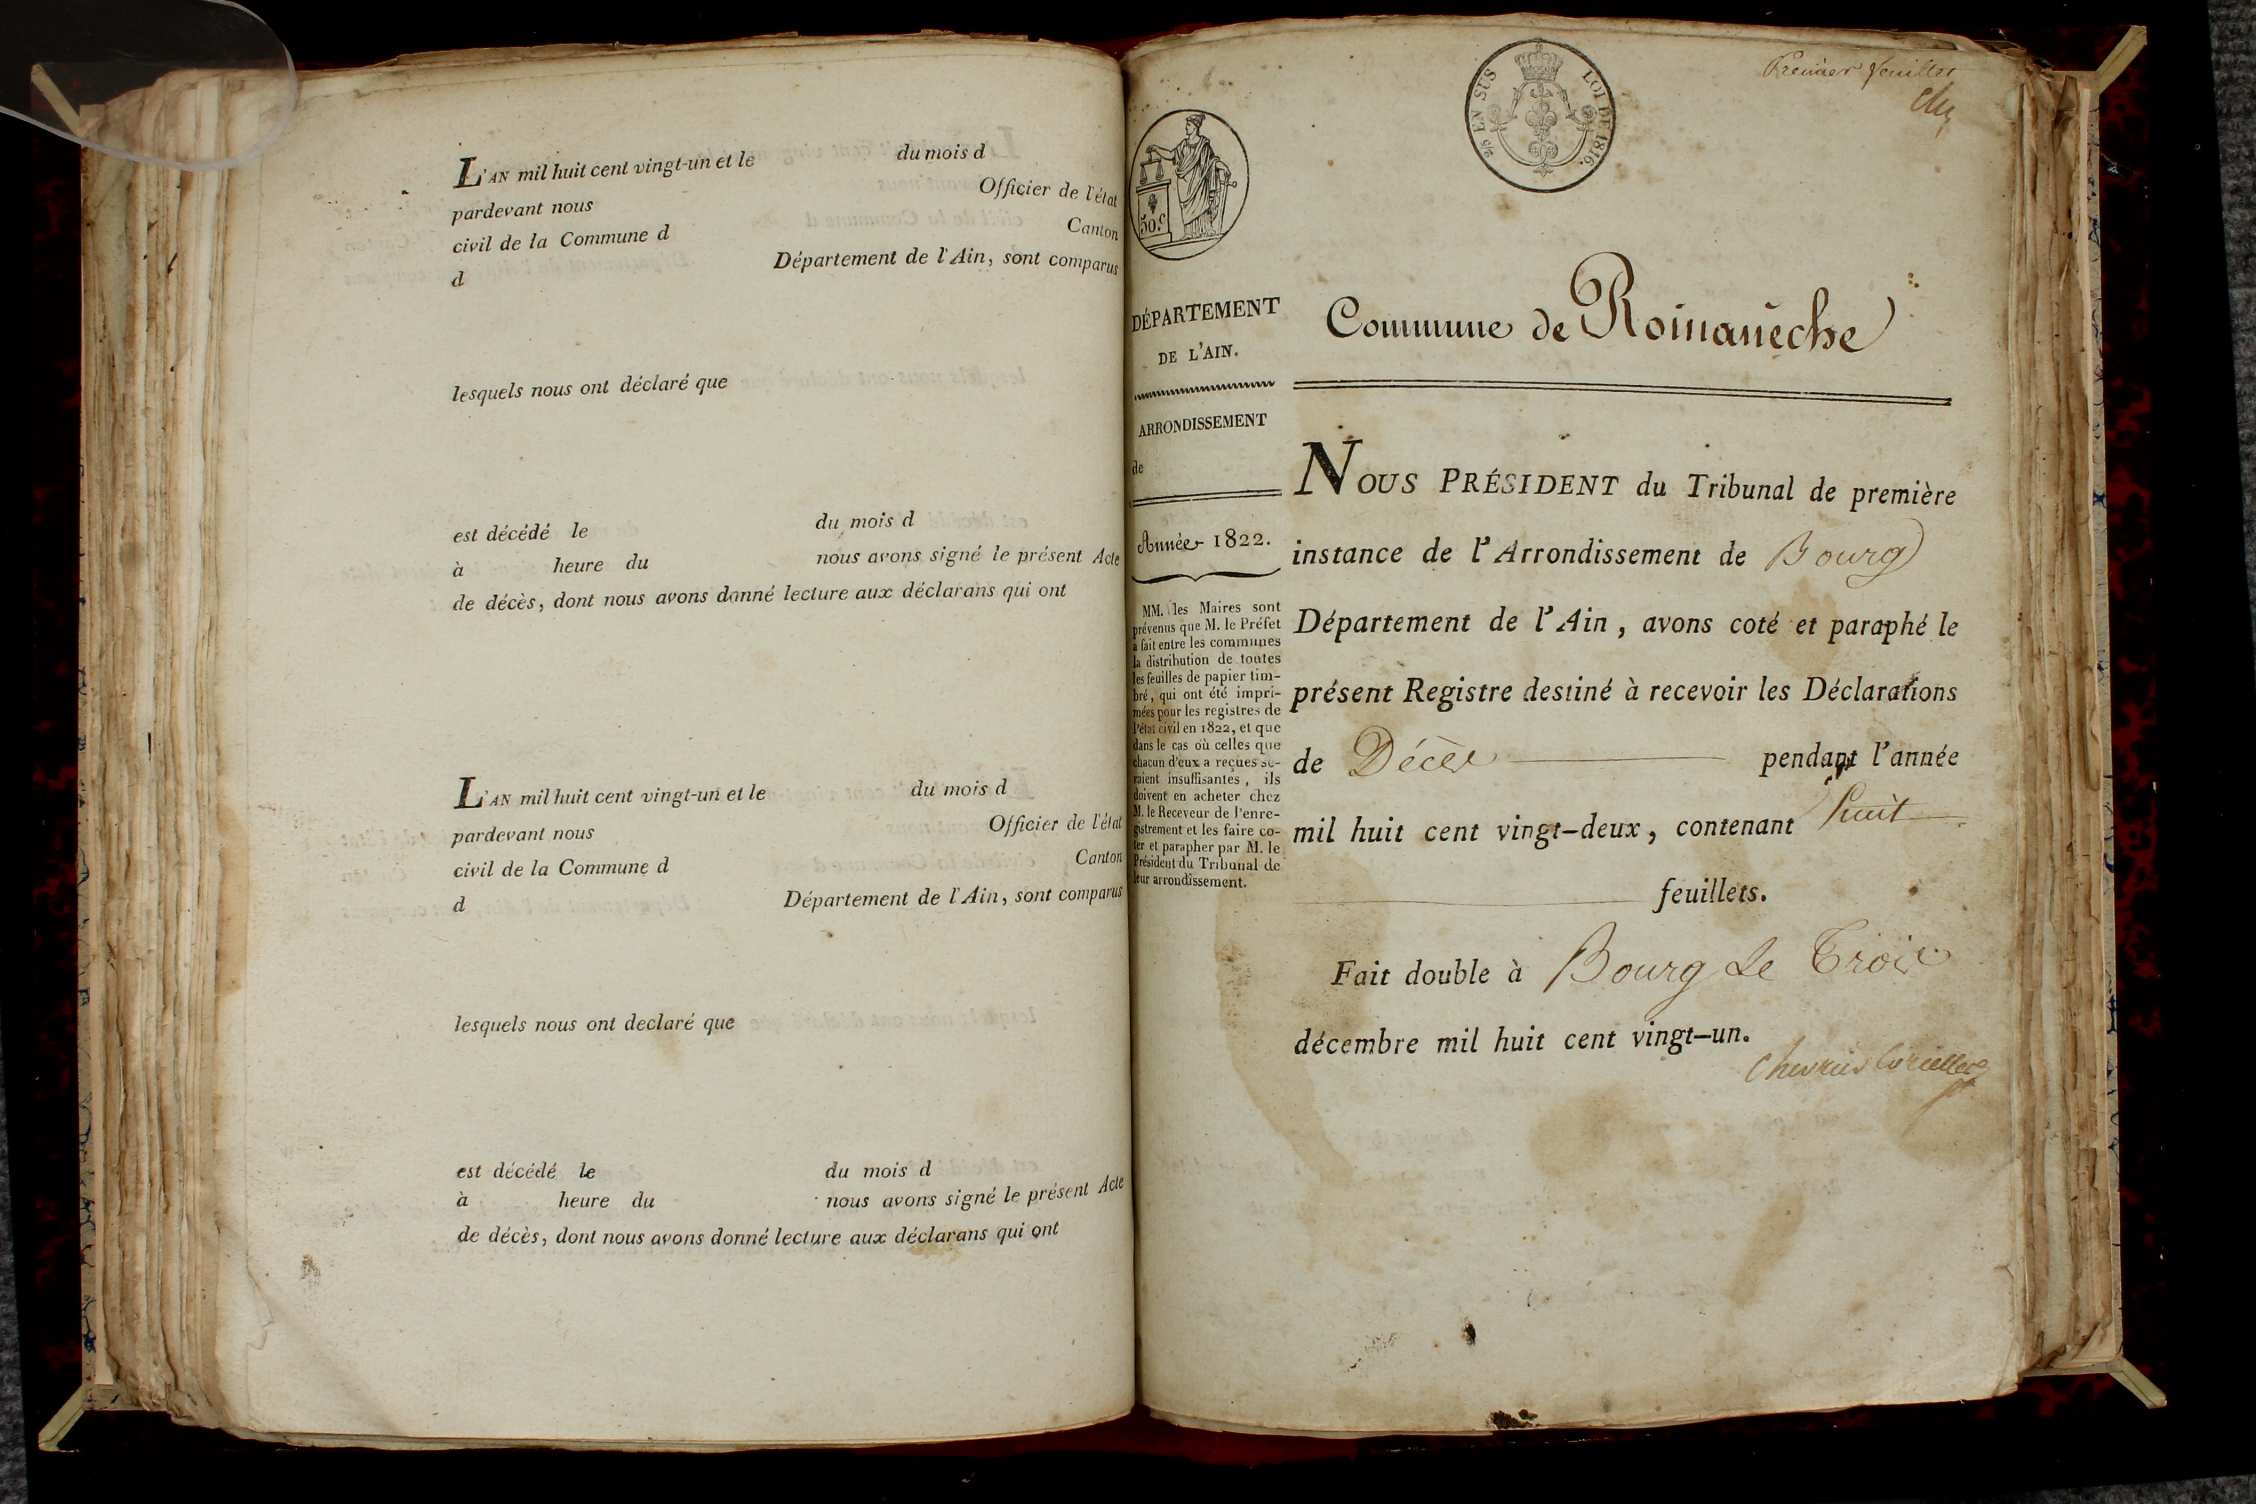 L'AN mil huit cent vingt-un et le du mois d
pardevant nous Officier de l'état
civil de la Commune d Canton
d Département de l'Ain, sont comparus
lesquels nous ont déclaré que
est décédé le du mois d
à heure du nous avons signé le présent Acte
de décès, dont nous avons donné lecture aux déclarans qui ont
L'AN mil huit cent vingt-un et le du mois d
pardevant nous Officier de l'état
civil de la Commune d Canton
d Département de l'Ain, sont comparus
lesquels nous ont declaré que
est décédé le du mois d
à heure du nous avons signé le présent Acte
de décès, dont nous avons donné lecture aux déclarans qui ont
Premier feuillet
2/5 EN SUS LOI DE 1816.
50.c
DÉPARTEMENT
DE L'AIN.
ARRONDISSEMENT
de
Année 1822.
MM. les Maires sont
prévenus que M. le Préfet
a fait entre les communes
la distribution de toutes
les feuilles de papier tim-
bré, qui ont été impri-
mées pour les registres de
l'état civil en 1822, et que
dans le cas où celles que
chacun d'eux a reçues se-
raient insuffisantes, ils
doivent en acheter chez
M. le Receveur de l'enre-
gistrement et les faire co-
ter et parapher par M. le
Président du Tribunal de
leur arrondissement.
Commune de Romanèche
NOUS PRÉSIDENT du Tribunal de première
instance de l'Arrondissement de Bourg
Département de l'Ain, avons coté et paraphé le
présent Registre destiné à recevoir les Déclarations
de Décès pendant l'année
mil huit cent vingt-deux, contenant huit
feuillets.
Fait double à Bourg le Trois
décembre mil huit cent vingt-un.